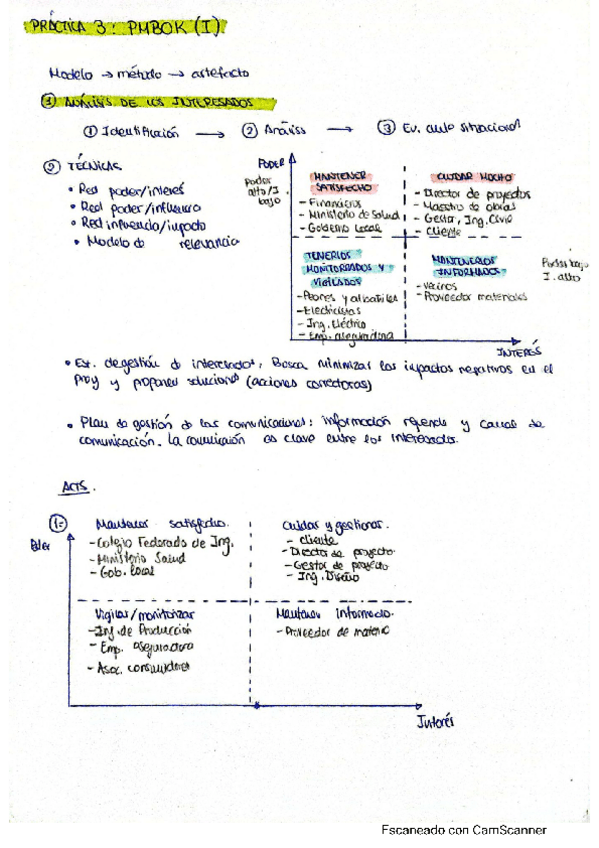 PRÁCTICA 3: PMBOK (I).
Modelo → método → artefacto
① ANÁLISIS DE LOS INTERESADOS
① Identificación → ② Análisis → ③ Ev. ciclo situacional
② TÉCNICAS
• Red poder/interés
• Red poder/influencia
• Red influencia/impacto
• Modelo de relevancia
PODER
Poder
alto/I.
bajo
MANTENER
SATISFECHO
- Financieros
- Ministerio de Salud
- Gobierno Local
CUIDAR MUCHO
- Director de proyectos
- Maestro de obras
- Gestor, Ing. Civil
- Cliente
TENERLOS
MONITOREADOS Y
VIGILADOS
- Peones y albañiles
- Electricistas
- Ing. Eléctrico
- Emp. aseguradora
MANTENERLOS
INFORMADOS
- Vecinos
- Proveedor materiales
Poder bajo
I. alto
INTERÉS
• Est. de gestión de interesados: Busca minimizar los impactos negativos en el
proy y proponer soluciones (acciones correctoras)
• Plan de gestión de las comunicaciones: información y canal de
comunicación. La comunicación es clave entre los interesados.
ACTS.
①=
Poder
Mantener satisfecho.
- Colegio Federado de Ing.
- Ministerio Salud
- Gob. local
Cuidar y gestionar.
- cliente
- Director de proyecto
- Gestor de proyecto
- Ing. Diseño
Vigilar/monitorizar
- Ing. de Producción
- Emp. aseguradora
- Asoc. consumidores
Mantener informado.
- Proveedor de material
Interés
Escaneado con CamScanner